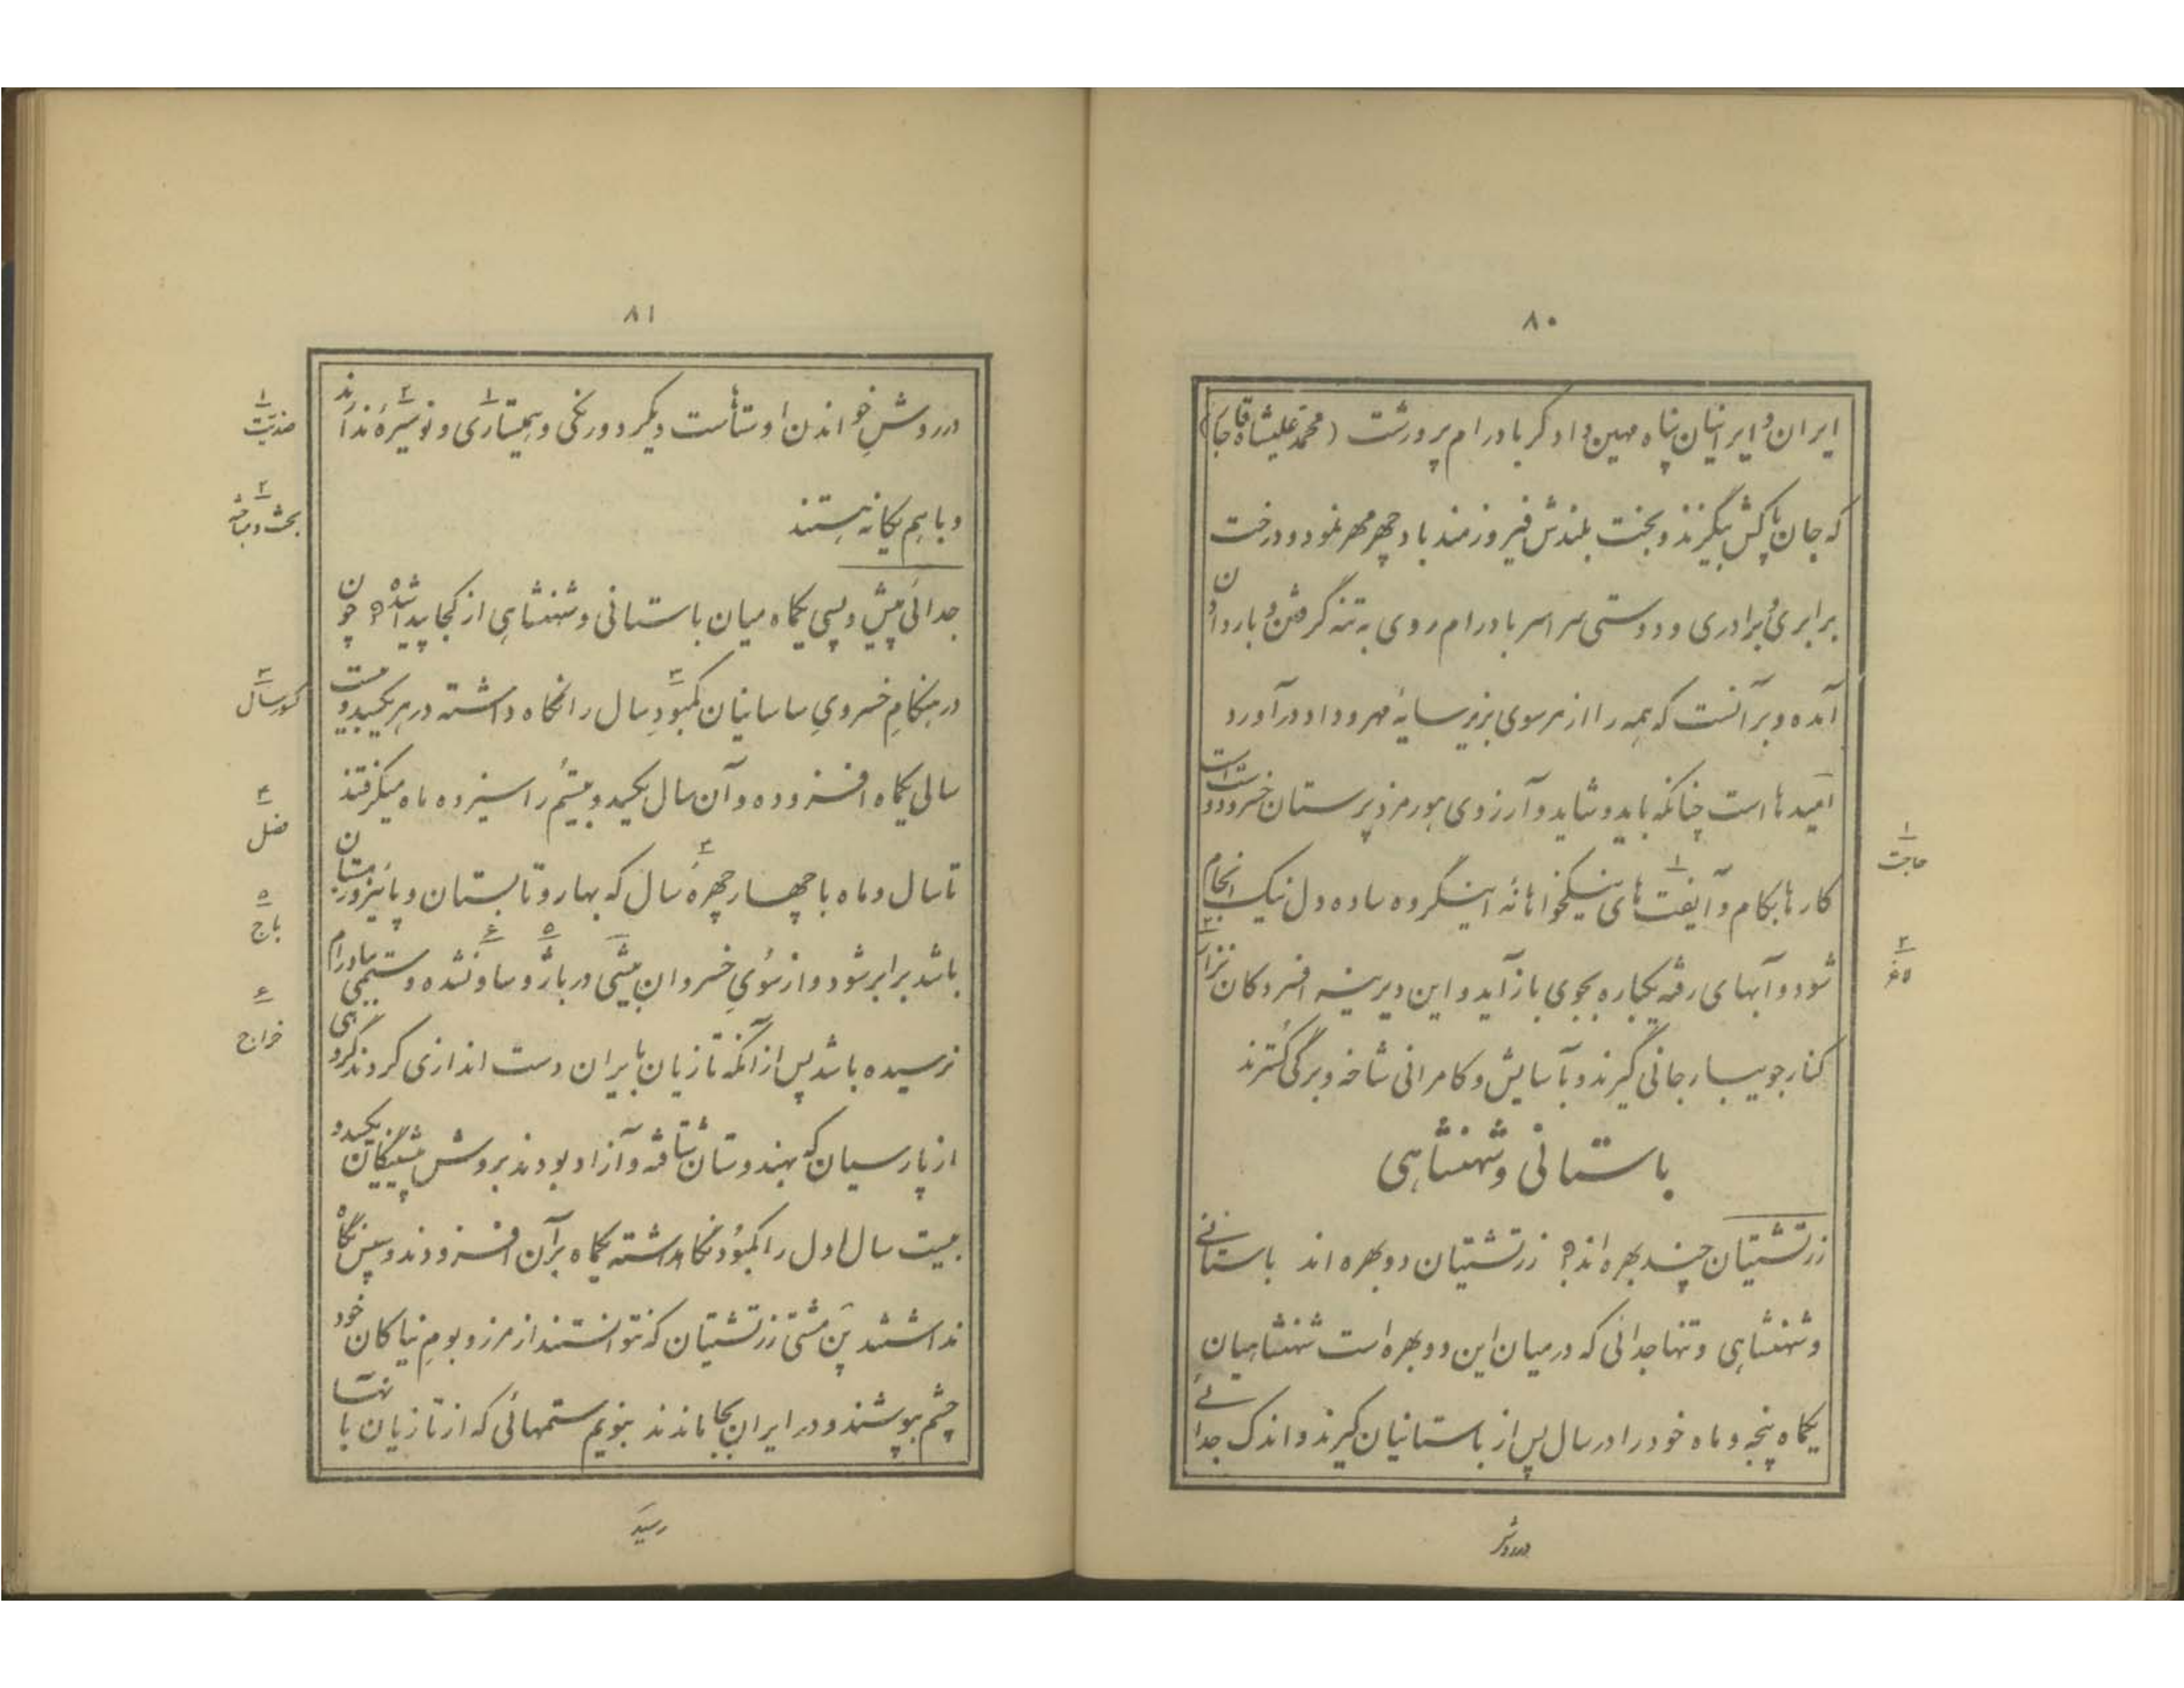 ۸۰
ایران و ایرانیان پناه مهین دادگر بادرام پرورشت (محمدعلیشاه قاجار)
که جان پاکش بیگزند و بخت بلندش فیروزمند باد چهر مهر نمود و درخت
برابری و برادری و دوستی سراسر بادرام روی به تنه گرفتن و بار دادن
آمده و بر آنست که همه را از هر سوی بزیر سایهٔ مهر و داد درآورد
امیدها است چنانکه باید و شاید و آرزوی هورمزدپرستان خسرو دوست است
کارها بکام و آیفت‌های نیکخواهانهٔ اینگروه ساده دل نیک انجام
شود و آبهای رفته یکباره بجوی باز آید و این دیرینه افسردگان نیز از
کنار جویبار جانی گیرند و بآسایش و کامرانی شاخه و برگی گسترند
باستانی و شهنشاهی
زرتشتیان چند بهره اند؟ زرتشتیان دو بهره اند باستانی
و شهنشاهی و تنها جدائی که در میان این دو بهره است شهنشاهیان
یکماه پنجه و ماه خود را در سال پس از باستانیان گیرند و اندک جدائی
در روش
۱ حاجت
۲
۸۱
در روش خواندن اوستا است دیگر دورنگی و همیستاری و نوسیره ندارند
و با هم یگانه هستند
جدائی پیش و پسی یکماه میان باستانی و شهنشاهی از کجا پیدا شده؟ چون
در هنگام خسروی ساسانیان کمبود سال را نگاه داشته در هر یکصد و بیست
سالی یکماه افزوده و آن سال یکصد و بیستم را سیزده ماه میگرفتند
تا سال و ماه با چهار چهرهٔ سال که بهار و تابستان و پائیز و زمستان
باشد برابر شود و از سوی خسروان بیشی در باژ و ساو نشده و ستمی بادرام
نرسیده باشد پس از آنکه تازیان بایران دست اندازی کردند گروهی
از پارسیان که بهندوستان شتافته و آزاد بودند بروش پیشینگان یکصد و
بیست سال اول را کمبود نگاهداشته یکماه بر آن افزودند و سپس نگاه
نداشتند پن مشتی زرتشتیان که نتوانستند از مرز و بوم نیاکان خود
چشم بپوشند و در ایران بجا ماندند بنویم ستمهائی که از تازیان بآنها
رسید
۱ ضدیت
۲ بحث و مباحثه
۳ کسور سال
۴ فصل
۵ باج
۶ خراج